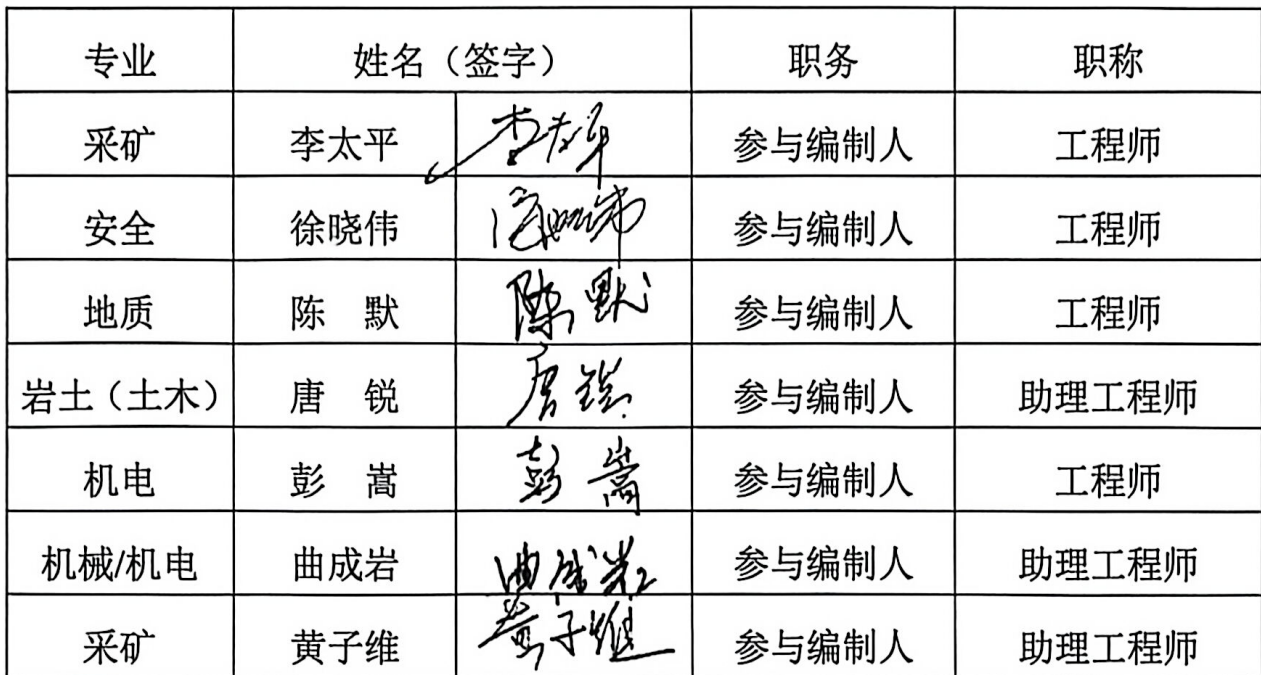 专业 姓名（签字） 职务 职称
采矿 李太平 李太平 参与编制人 工程师
安全 徐晓伟 徐晓伟 参与编制人 工程师
地质 陈 默 陈默 参与编制人 工程师
岩土（土木） 唐 锐 唐锐 参与编制人 助理工程师
机电 彭 嵩 彭嵩 参与编制人 工程师
机械/机电 曲成岩 曲成岩 参与编制人 助理工程师
采矿 黄子维 黄子维 参与编制人 助理工程师